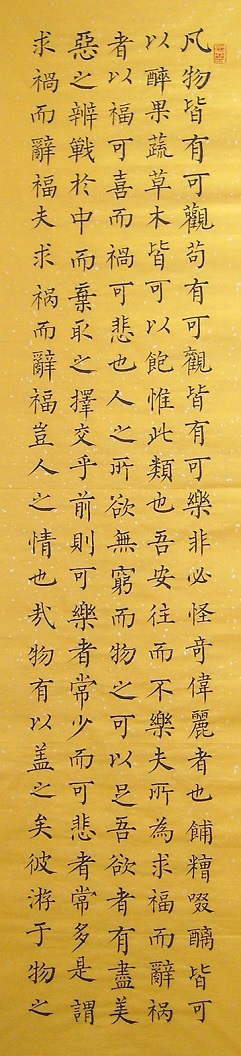 凡物皆有可觀苟有可觀皆有可樂非必怪奇偉麗者也餔糟啜醨皆可
以醉果蔬草木皆可以飽惟此類也吾安往而不樂夫所為求福而辭祸
者以福可喜而禍可悲也人之所欲無窮而物之可以足吾欲者有盡美
惡之辨戰於中而棄取之擇交乎前則可樂者常少而可悲者常多是謂
求禍而辭福夫求祸而辭福豈人之情也哉物有以盖之矣彼游于物之